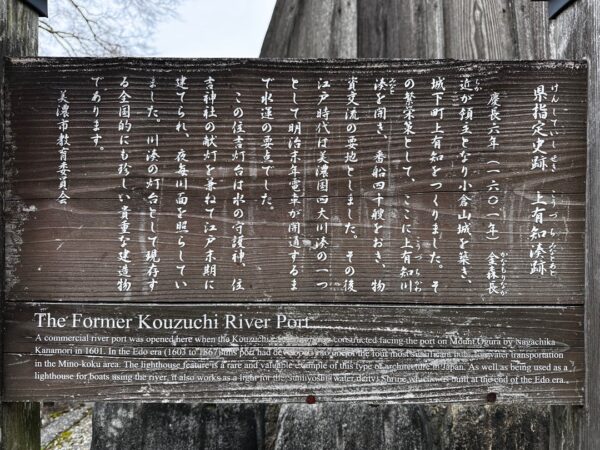 県指定史跡 上有知湊跡
けんしていしせき こうづちみなとあと
慶長六年（一六〇一年）金森長
近が領主となり小倉山城を築き、
城下町上有知をつくりました。そ
の繁栄策として、ここに上有知川
湊を開き、番船四十艘をおき、物
資交流の要地としました。その後
江戸時代は美濃国四大川湊の一つ
として明治末年電車が開通するま
で水運の要点でした。
この住吉灯台は水の守護神、住
吉神社の献灯を兼ねて江戸末期に
建てられ、夜毎川面を照らしてい
ました。川湊の灯台として現存す
る全国的にも珍しい貴重な建造物
であります。
美濃市教育委員会
The Former Kouzuchi River Port
A commercial river port was opened here when the Kouzuchi constructed facing the port on Mount Ogura by Nagachika
Kanamori in 1601. In the Edo era (1603 to 1867) this port had developed into one of the four most significant water transportation
in the Mino-koku area. The lighthouse feature is a rare and valuable example of this type of architecture in Japan. As well as being used as a
lighthouse for boats using the river, it also works as a light for the Sumiyoshi water deity Shrine, which was built at the end of the Edo era.